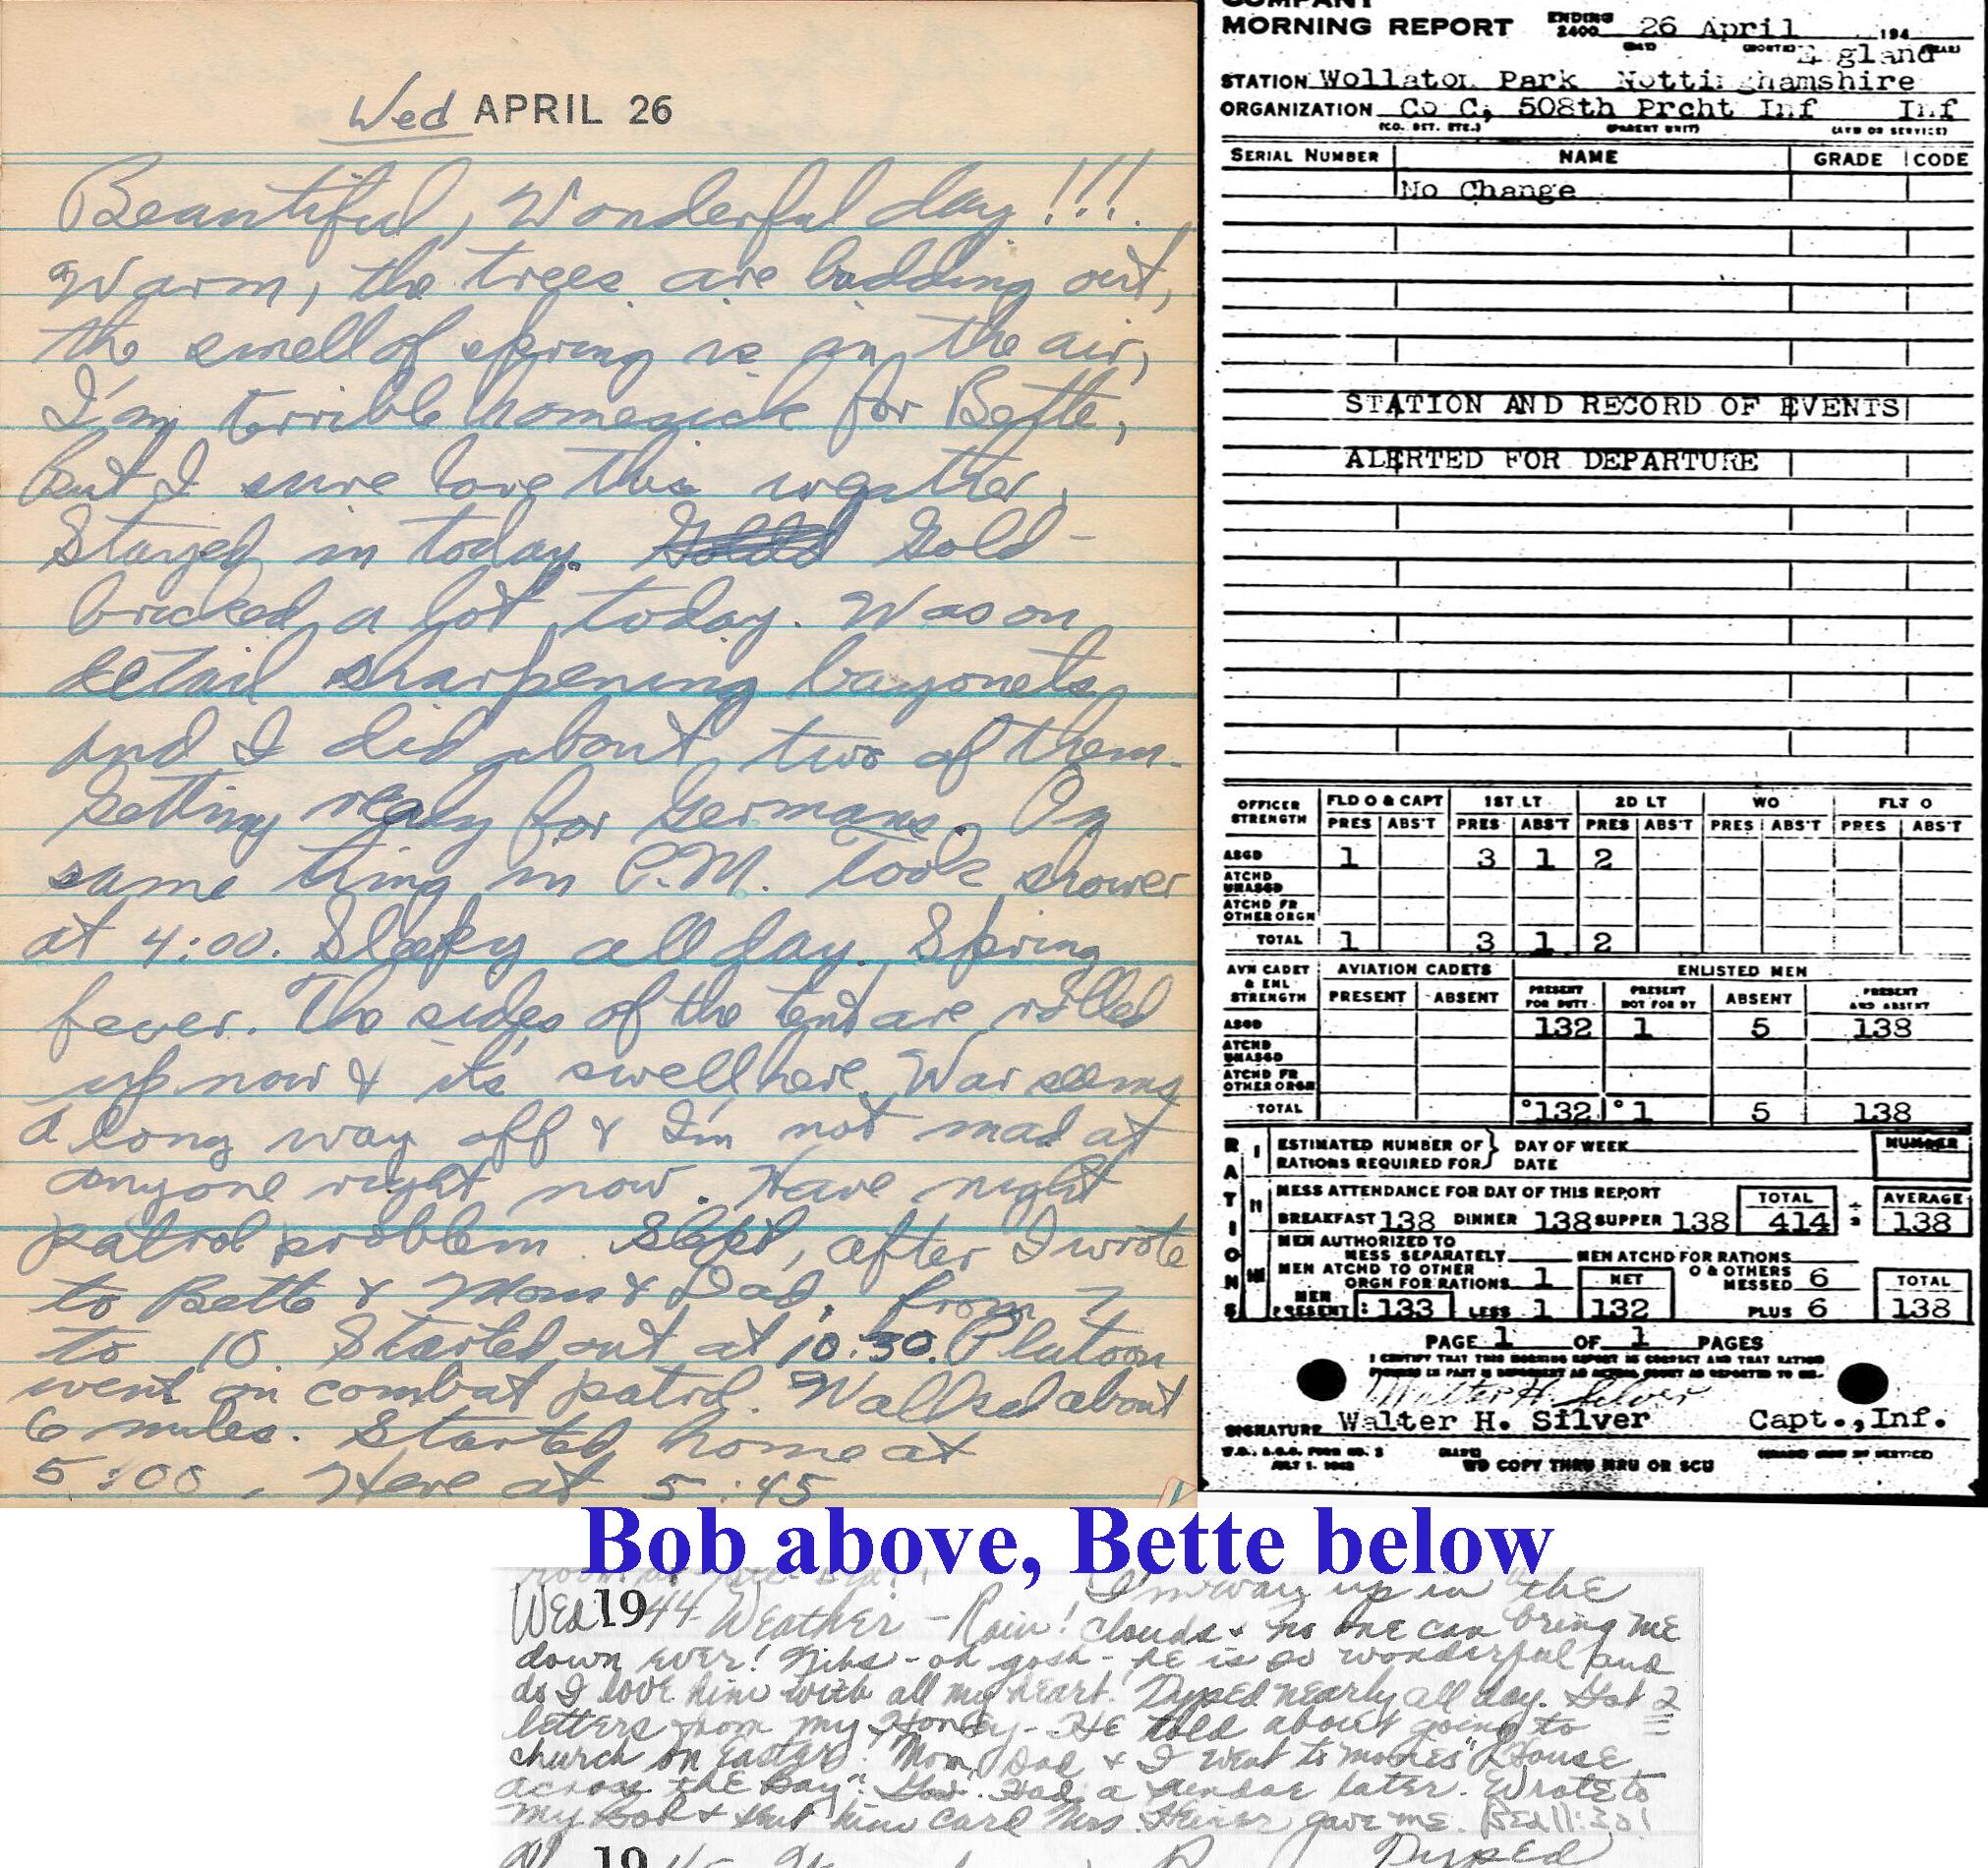 Wed APRIL 26
Beautiful, Wonderful day!!!
Warm, the trees are budding out,
the smell of spring is in the air,
I'm terrible homesick for Bette,
but I sure love this weather.
Stayed in today. Gold-
bricked a lot today. Was on
detail sharpening bayonets
and I did about two of them.
Getting ready for Germans. On
same thing in P.M. Took shower
at 4:00. Sleepy all day. Spring
fever. The sides of the tent are rolled
up now & it's swell here. War seems
a long way off & I'm not mad at
anyone right now. Have night
patrol problem. Slept, after I wrote
to Bette & Mom & Dad, from 7
to 10. Started out at 10:30. Platoon
went on combat patrol. Walked about
6 miles. Started home at
5:00. Here at 5:45
COMPANY
MORNING REPORT ENDING 2400 26 April 194
England
STATION Wollaton Park Nottinghamshire
ORGANIZATION Co C, 508th Prcht Inf Inf
(CO. DET. ETC.) (PARENT UNIT) (ARM OR SERVICE)
SERIAL NUMBER NAME GRADE CODE
No Change
STATION AND RECORD OF EVENTS
ALERTED FOR DEPARTURE
OFFICER STRENGTH FLD O & CAPT 1ST LT 2D LT WO FLT O
PRES ABS'T PRES ABS'T PRES ABS'T PRES ABS'T PRES ABS'T
ASGD 1 3 1 2
ATCHD UNASGD
ATCHD FR OTHER ORGN
TOTAL 1 3 1 2
AVN CADET & ENL STRENGTH AVIATION CADETS ENLISTED MEN
PRESENT ABSENT PRESENT FOR DUTY PRESENT NOT FOR DY ABSENT PRESENT AND ABSENT
ASGD 132 1 5 138
ATCHD UNASGD
ATCHD FR OTHER ORGN
TOTAL 132 1 5 138
RATIONS
I ESTIMATED NUMBER OF RATIONS REQUIRED FOR DAY OF WEEK DATE NUMBER
II MESS ATTENDANCE FOR DAY OF THIS REPORT TOTAL AVERAGE
BREAKFAST 138 DINNER 138 SUPPER 138 414 ÷ 3 138
III MEN AUTHORIZED TO MESS SEPARATELY MEN ATCHD FOR RATIONS
MEN ATCHD TO OTHER ORGN FOR RATIONS 1 NET O & OTHERS MESSED 6 TOTAL
MEN PRESENT: 133 LESS 1 132 PLUS 6 138
PAGE 1 OF 1 PAGES
I CERTIFY THAT THIS MORNING REPORT IS CORRECT AND THAT RATION
Walter H. Silver
SIGNATURE Walter H. Silver Capt., Inf.
W.D., A.G.O. FORM NO. 1
JULY 1, 1943 WD COPY THRU MRU OR SCU
Bob above, Bette below
I'm way up in the
Wed 1944 Weather - Rain! clouds & no one can bring me
down ever! Nibs - oh gosh - he is so wonderful and
do I love him with all my heart! Typed nearly all day. Got 2
letters from my Honey - He told about going to
church on Easter. Mom, Dad & I went to movies "House
across the Bay". Had a sundae later. Wrote to
my Bob & sent him card Mrs. gave me. Bed 11:30!
19 Typed